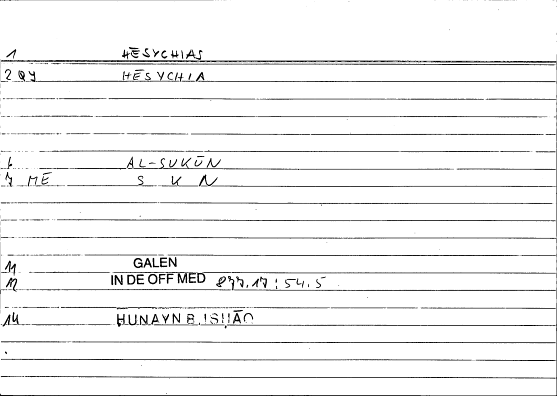 1 HĒSYCHIAS
2 QY HĒSYCHIA
6 AL-SUKŪN
7 ME S K N
11 GALEN
12 IN DE OFF MED 877.17 : 54.5
14 ḤUNAYN B. ISḤĀQ